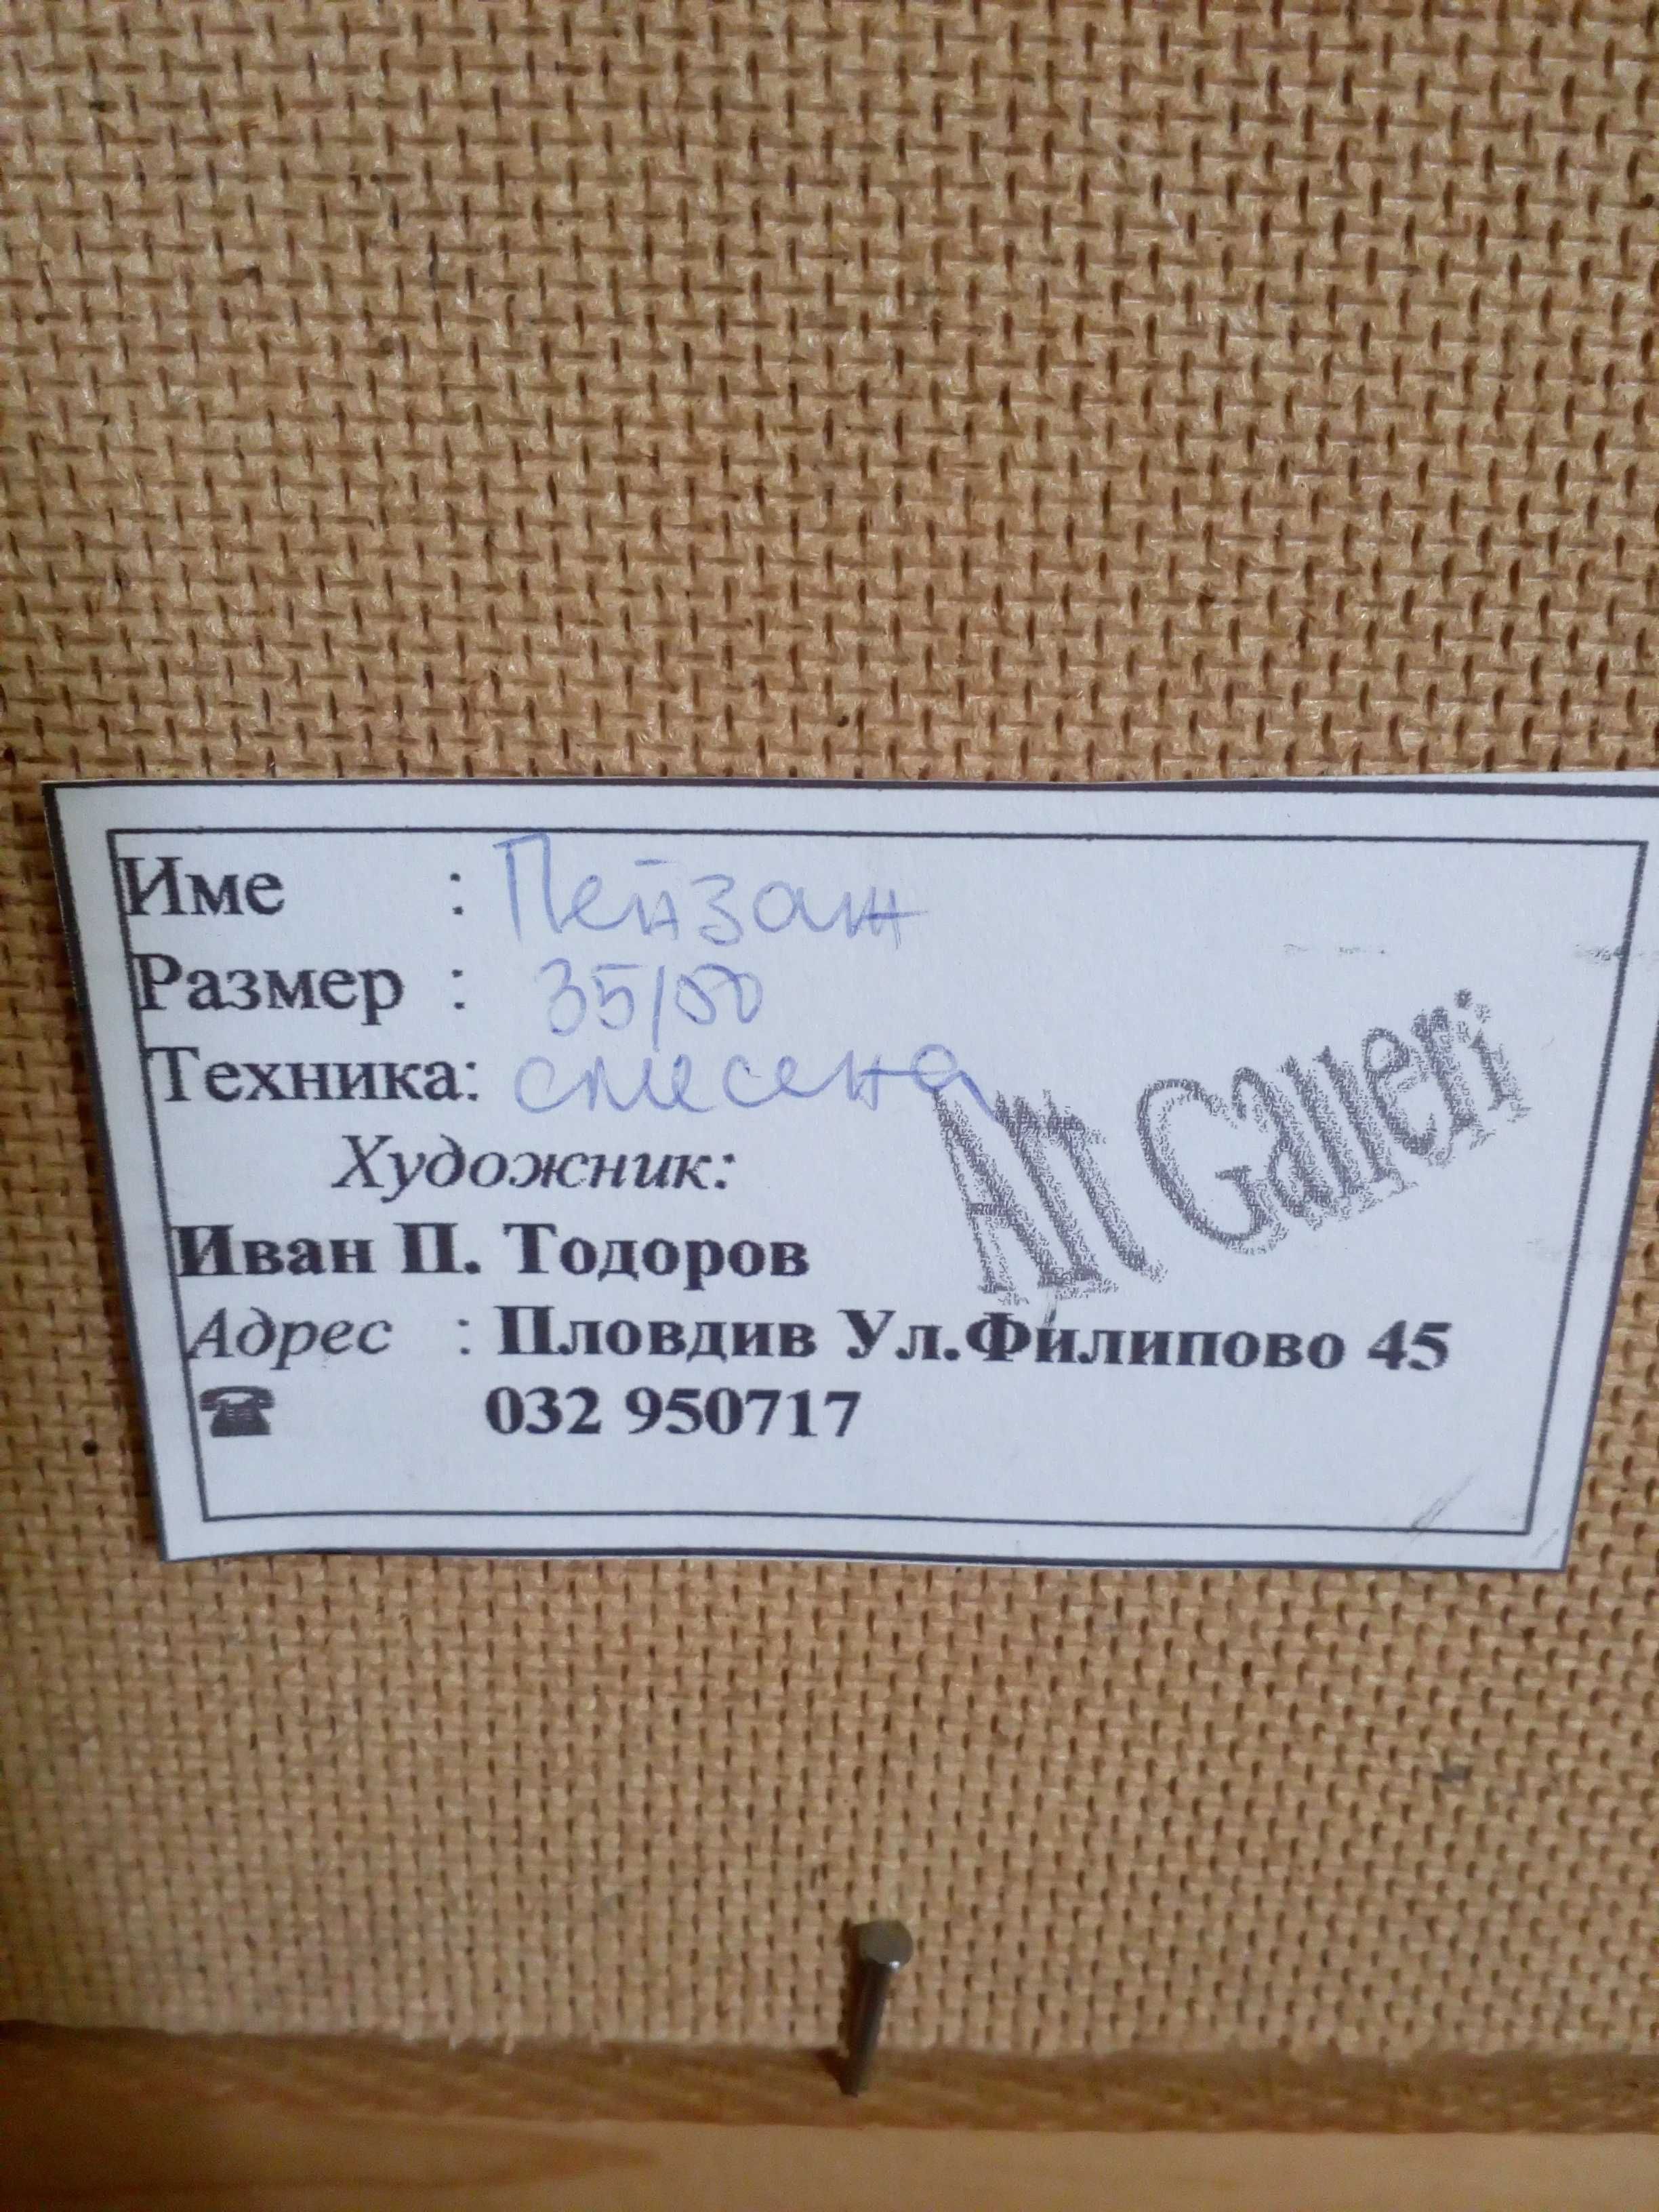 Име : Пейзаж
Размер : 35/50
Техника: смесена
Художник:
Art Galleri
Иван П. Тодоров
Адрес : Пловдив Ул.Филипово 45
☎ 032 950717